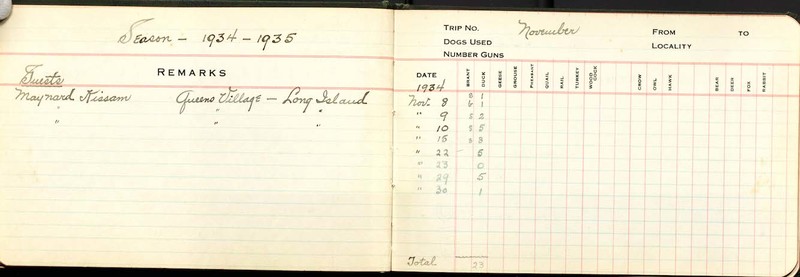 Season - 1934 - 1935
Guests REMARKS
Maynard Kissam Queens Village - Long Island
" " "
" " "
TRIP NO. November FROM TO
DOGS USED LOCALITY
NUMBER GUNS
DATE BRANT DUCK GEESE GROUSE PHEASANT QUAIL RAIL TURKEY WOODCOCK CROW OWL HAWK BEAR DEER FOX RABBIT
1934
Nov. 8 1
" 9 2
" 10 5
" 15 3
" 22 5
" 23 0
" 29 5
" 30 1
Total 23